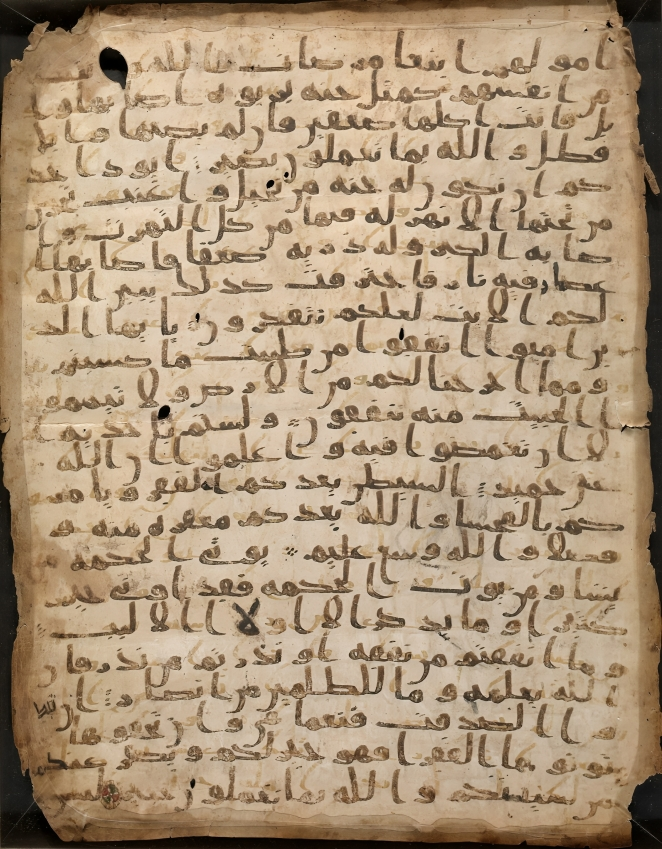 امولهم ابتغا مرضات الله
من انفسهم كمثل جنة بربوة اصابها وا
بل فاتت اكلها ضعفين فان لم يصبها وابل
فطل والله بما تعملون بصير ايود احد
كم ان تكون له جنة من نخيل واعنب تجري
من تحتها الانهر له فيها من كل الثمرت وا
صابه الكبر وله ذرية ضعفا فاصابها ا
عصار فيه نار فاحترقت كذلك يبين الله
لكم الايت لعلكم تتفكرون يايها الذ
ين امنوا انفقوا من طيبت ما كسبتم
ومما اخرجنا لكم من الارض ولا تيممو
ا الخبيث منه تنفقون ولستم باخذيه ا
لا ان تغمضوا فيه واعلموا ان الله
غني حميد الشيطن يعدكم الفقر ويامر
كم بالفحشا والله يعدكم مغفرة منه و
فضلا والله وسع عليم يوتي الحكمة من
يشا ومن يوت الحكمة فقد اوتي خير
كثيرا وما يذكر الا اولا الالبب
وما انفقتم من نفقة او نذرتم من نذر فان
الله يعلمه وما للظلمين من انصار ان
وا الصدقت فنعما هي وان تخفوها
وتوتوها الفقرا فهو خير لكم ونكفر عنكم
من سيتكم والله بما تعملون خبير ليس